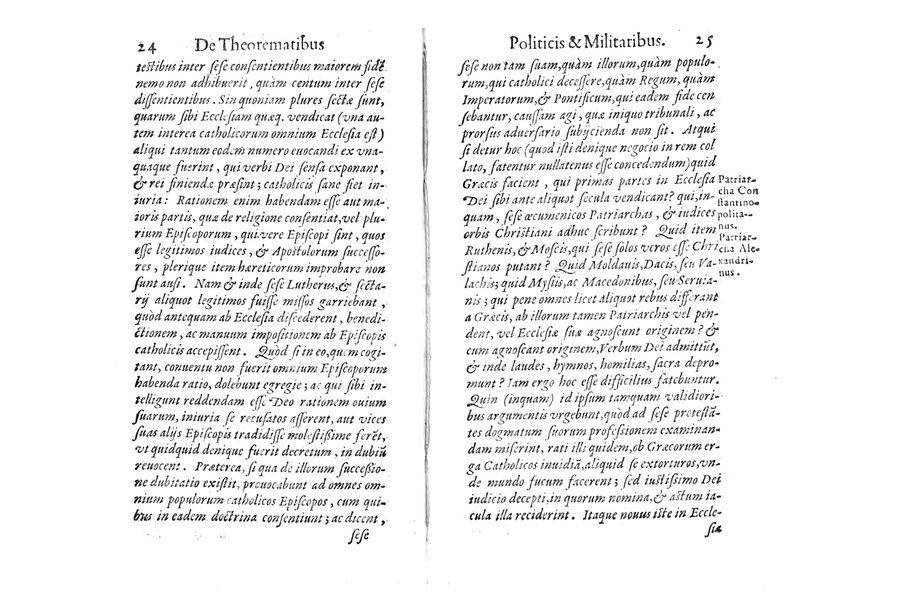 24 De Theorematibus
testibus inter sese consentientibus maiorem fidē
nemo non adhibuerit, quàm centum inter sese
dissentientibus. Sin quoniam plures sectæ sunt,
quarum sibi Ecclesiam quæq. vendicat (vna au-
tem interea catholicorum omnium Ecclesia est)
aliqui tantum eodem numero euocandi ex vna-
quaque fuerint, qui verbi Dei sensa exponant,
& rei finiendæ præsint; catholicis sane fiet in-
iuria: Rationem enim habendam esse aut ma-
ioris partis, quæ de religione consentiat, vel plu-
rium Episcoporum, qui vere Episcopi sint, quos
esse legitimos iudices, & Apostolorum successo-
res, plerique item hæreticorum improbare non
sunt ausi. Nam & inde sese Lutherus, & secta-
rÿ aliquot legitimos fuisse missos garriebant,
quòd antequam ab Ecclesia discederent, benedi-
ctionem, ac manuum impositionem ab Episcopis
catholicis accepissent. Quòd si in eo, quem cogi-
tant, conuentu non fuerit omnium Episcoporum
habenda ratio, dolebunt egregie; ac qui sibi in-
telligunt reddendam esse Deo rationem ouium
suarum, iniuria se recusatos asserent, aut vices
suas alijs Episcopis tradidisse molestissime ferēt,
vt quidquid denique fuerit decretum, in dubiū
reuocent. Præterea, si qua de illorum successio-
ne dubitatio existit, prouocabunt ad omnes om-
nium populorum catholicos Episcopos, cum qui-
bus in eadem doctrina consentiunt; ac dicent,
sese
Politicis & Militaribus. 25
sese non tam suam, quàm illorum, quàm populo-
rum, qui catholici decessere, quàm Regum, quàm
Imperatorum, & Pontificum, qui eadem fide cen
sebantur, caussam agi, quæ iniquo tribunali, ac
prorsus aduersario subijcienda non sit. Atqui
si detur hoc (quod isti denique negocio in rem col
lato, fatentur nullatenus esse concedendum) quid
Græcis facient, qui primas partes in Ecclesia
Dei sibi ante aliquot secula vendicant? qui, in-
quam, sese œcumenicos Patriarchas, & iudices
orbis Christiani adhuc scribunt? Quid item
Ruthenis, & Moscis, qui sese solos veros esse Chri
stianos putant? Quid Moldauis, Dacis, seu Va-
lachis; quid Mysis, ac Macedonibus, seu Seruia-
nis; qui pene omnes licet aliquot rebus differant
a Græcis, ab illorum tamen Patriarchis vel pen-
dent, vel Ecclesiæ suæ agnoscunt originem? &
cum agnoscant originem, Verbum Dei admittūt,
& inde laudes, hymnos, homilias, sacra depro-
munt? Iam ergo hoc esse difficilius fatebuntur.
Quin (inquam) id ipsum tamquam validiori-
bus argumentis vrgebunt, quòd ad sese protestā-
tes dogmatum suorum professionem examinan-
dam miserint, rati illi quidem, ob Græcorum er-
ga Catholicos inuidiā, aliquid se extorturos, vn-
de mundo fucum facerent; sed iustissimo Dei
iudicio decepti, in quorum nomina, & astum ia-
cula illa reciderint. Itaque nouus iste in Eccle-
sia
Patriar-
cha Con
stantino-
polita-
nus.
Patriar-
cha Ale-
xandri-
nus.